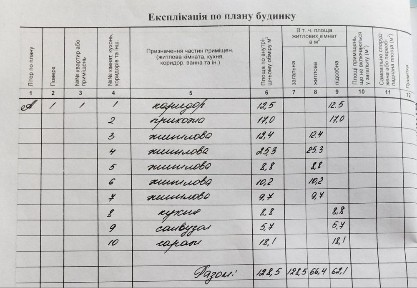 Експлікація по плану будинку
Літер по плану Поверх №№ квартир або приміщень №№ кімнат, кухонь, коридорів та інш. Призначення частин приміщень (житлова кімната, кухня, коридор, ванна та ін.) Площа по внутрішньому обміру м² В т. ч. площа житлових кімнат в м² загальна житлова підсобна
1 2 3 4 5 6 7 8 9 10 11 12
А 1 1 1 коридор 12,5 12.5
2 17,0 17,0
3 житлова 12,4 12.4
4 житлова 25,3 25.3
5 житлова 8,8 8,8
6 житлова 10,2 10,2
7 житлова 9,7 9.7
8 кухня 8,8 8,8
9 санвузол 5,7 5,7
10 гараж 18,1 18,1
Разом: 128,5 128,5 66,4 62,1